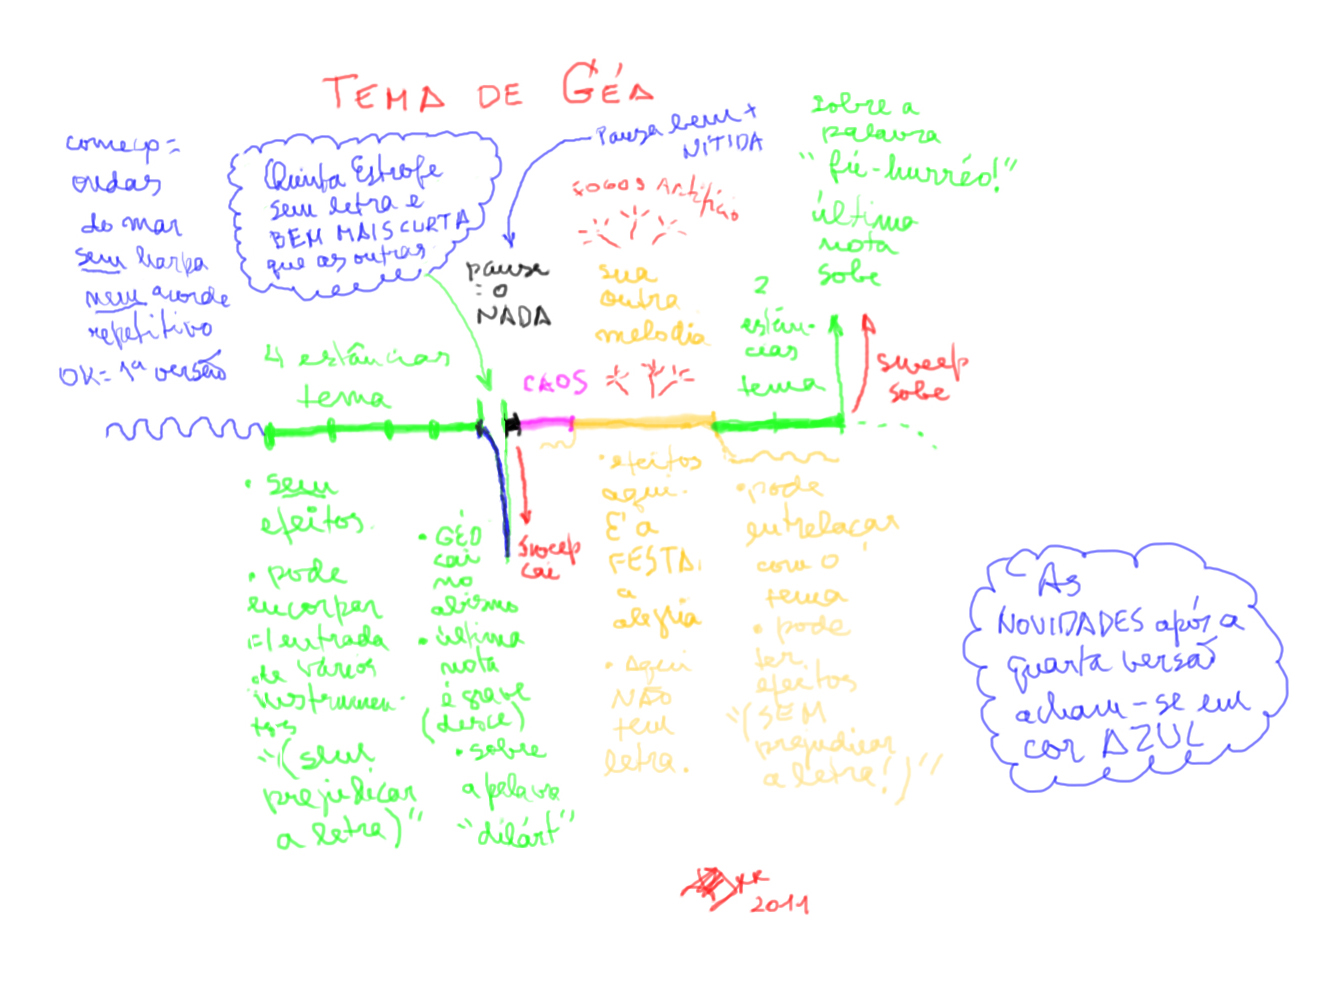 TEMA DE GÉA
começo =
ondas
do mar
sem harpa
nem acorde
repetitivo
OK = 1ª versão
Quinta Estrofe
sem letra e
BEM MAIS CURTA
que as outras
Pausa bem +
NÍTIDA
pausa
= o
NADA
FOGOS Artifício
sua
outra
melodia
sobre a
palavra
"fié-hurréo!"
última
nota
sobe
2
estân-
cias
tema
sweep
sobe
4 estâncias
tema
CAOS
• sem
efeitos.
• pode
encorpar
c/ entrada
de vários
instrumen-
tos
"(sem
prejudicar
a letra)"
• GÉO
cai
no
abismo
• última
nota
é grave
(desce)
• sobre
a palavra
"dilárt"
Sweep
cai
• efeitos
aqui.
É a
FESTA,
a
alegria
• Aqui
NÃO
tem
letra.
• pode
entrelaçar
com o
tema
• pode
ter
efeitos
"(SEM
prejudicar
a letra!)"
As
NOVIDADES após a
quarta versão
acham-se em
cor AZUL
2011